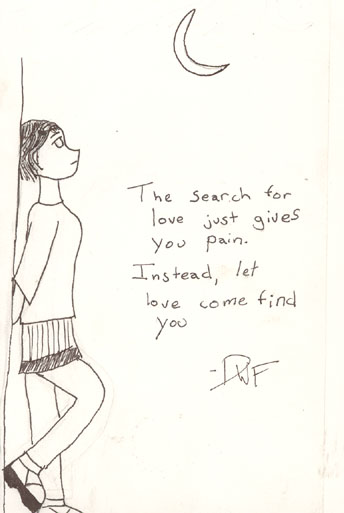 The search for
love just gives
you pain.
Instead, let
love come find
you
-DWF